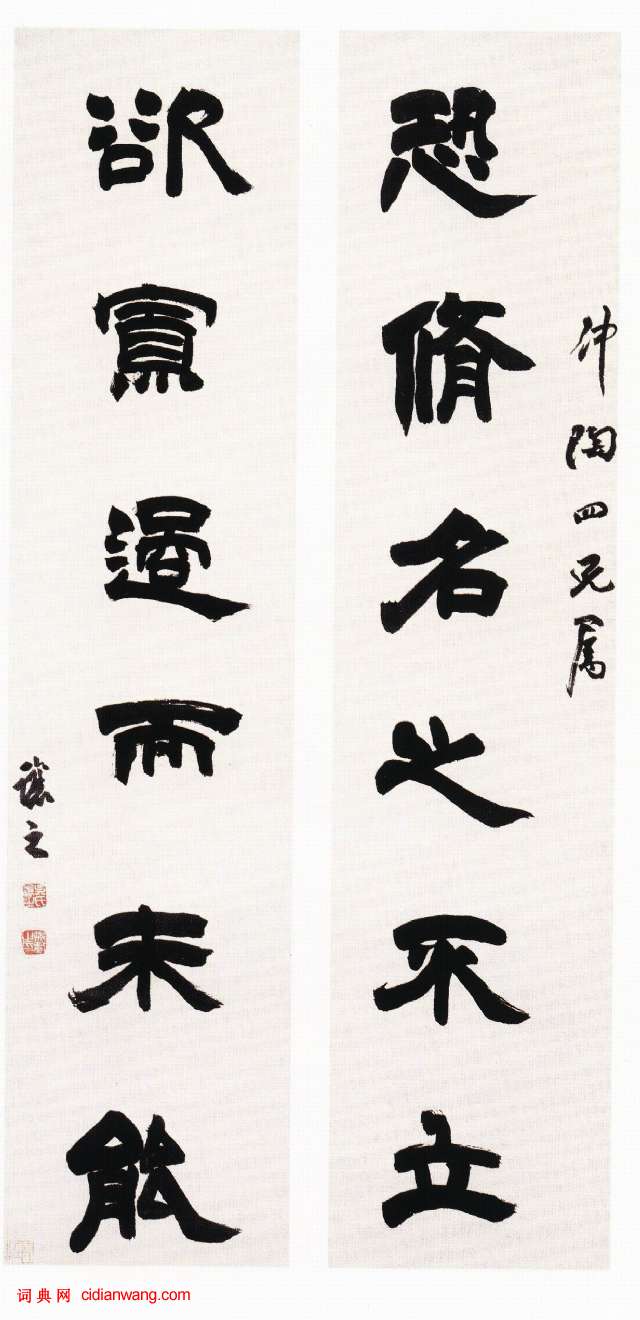 仲陶四兄属
恐脩名之不立
欲寡過而未能
讓之
词典网 cidianwang.com